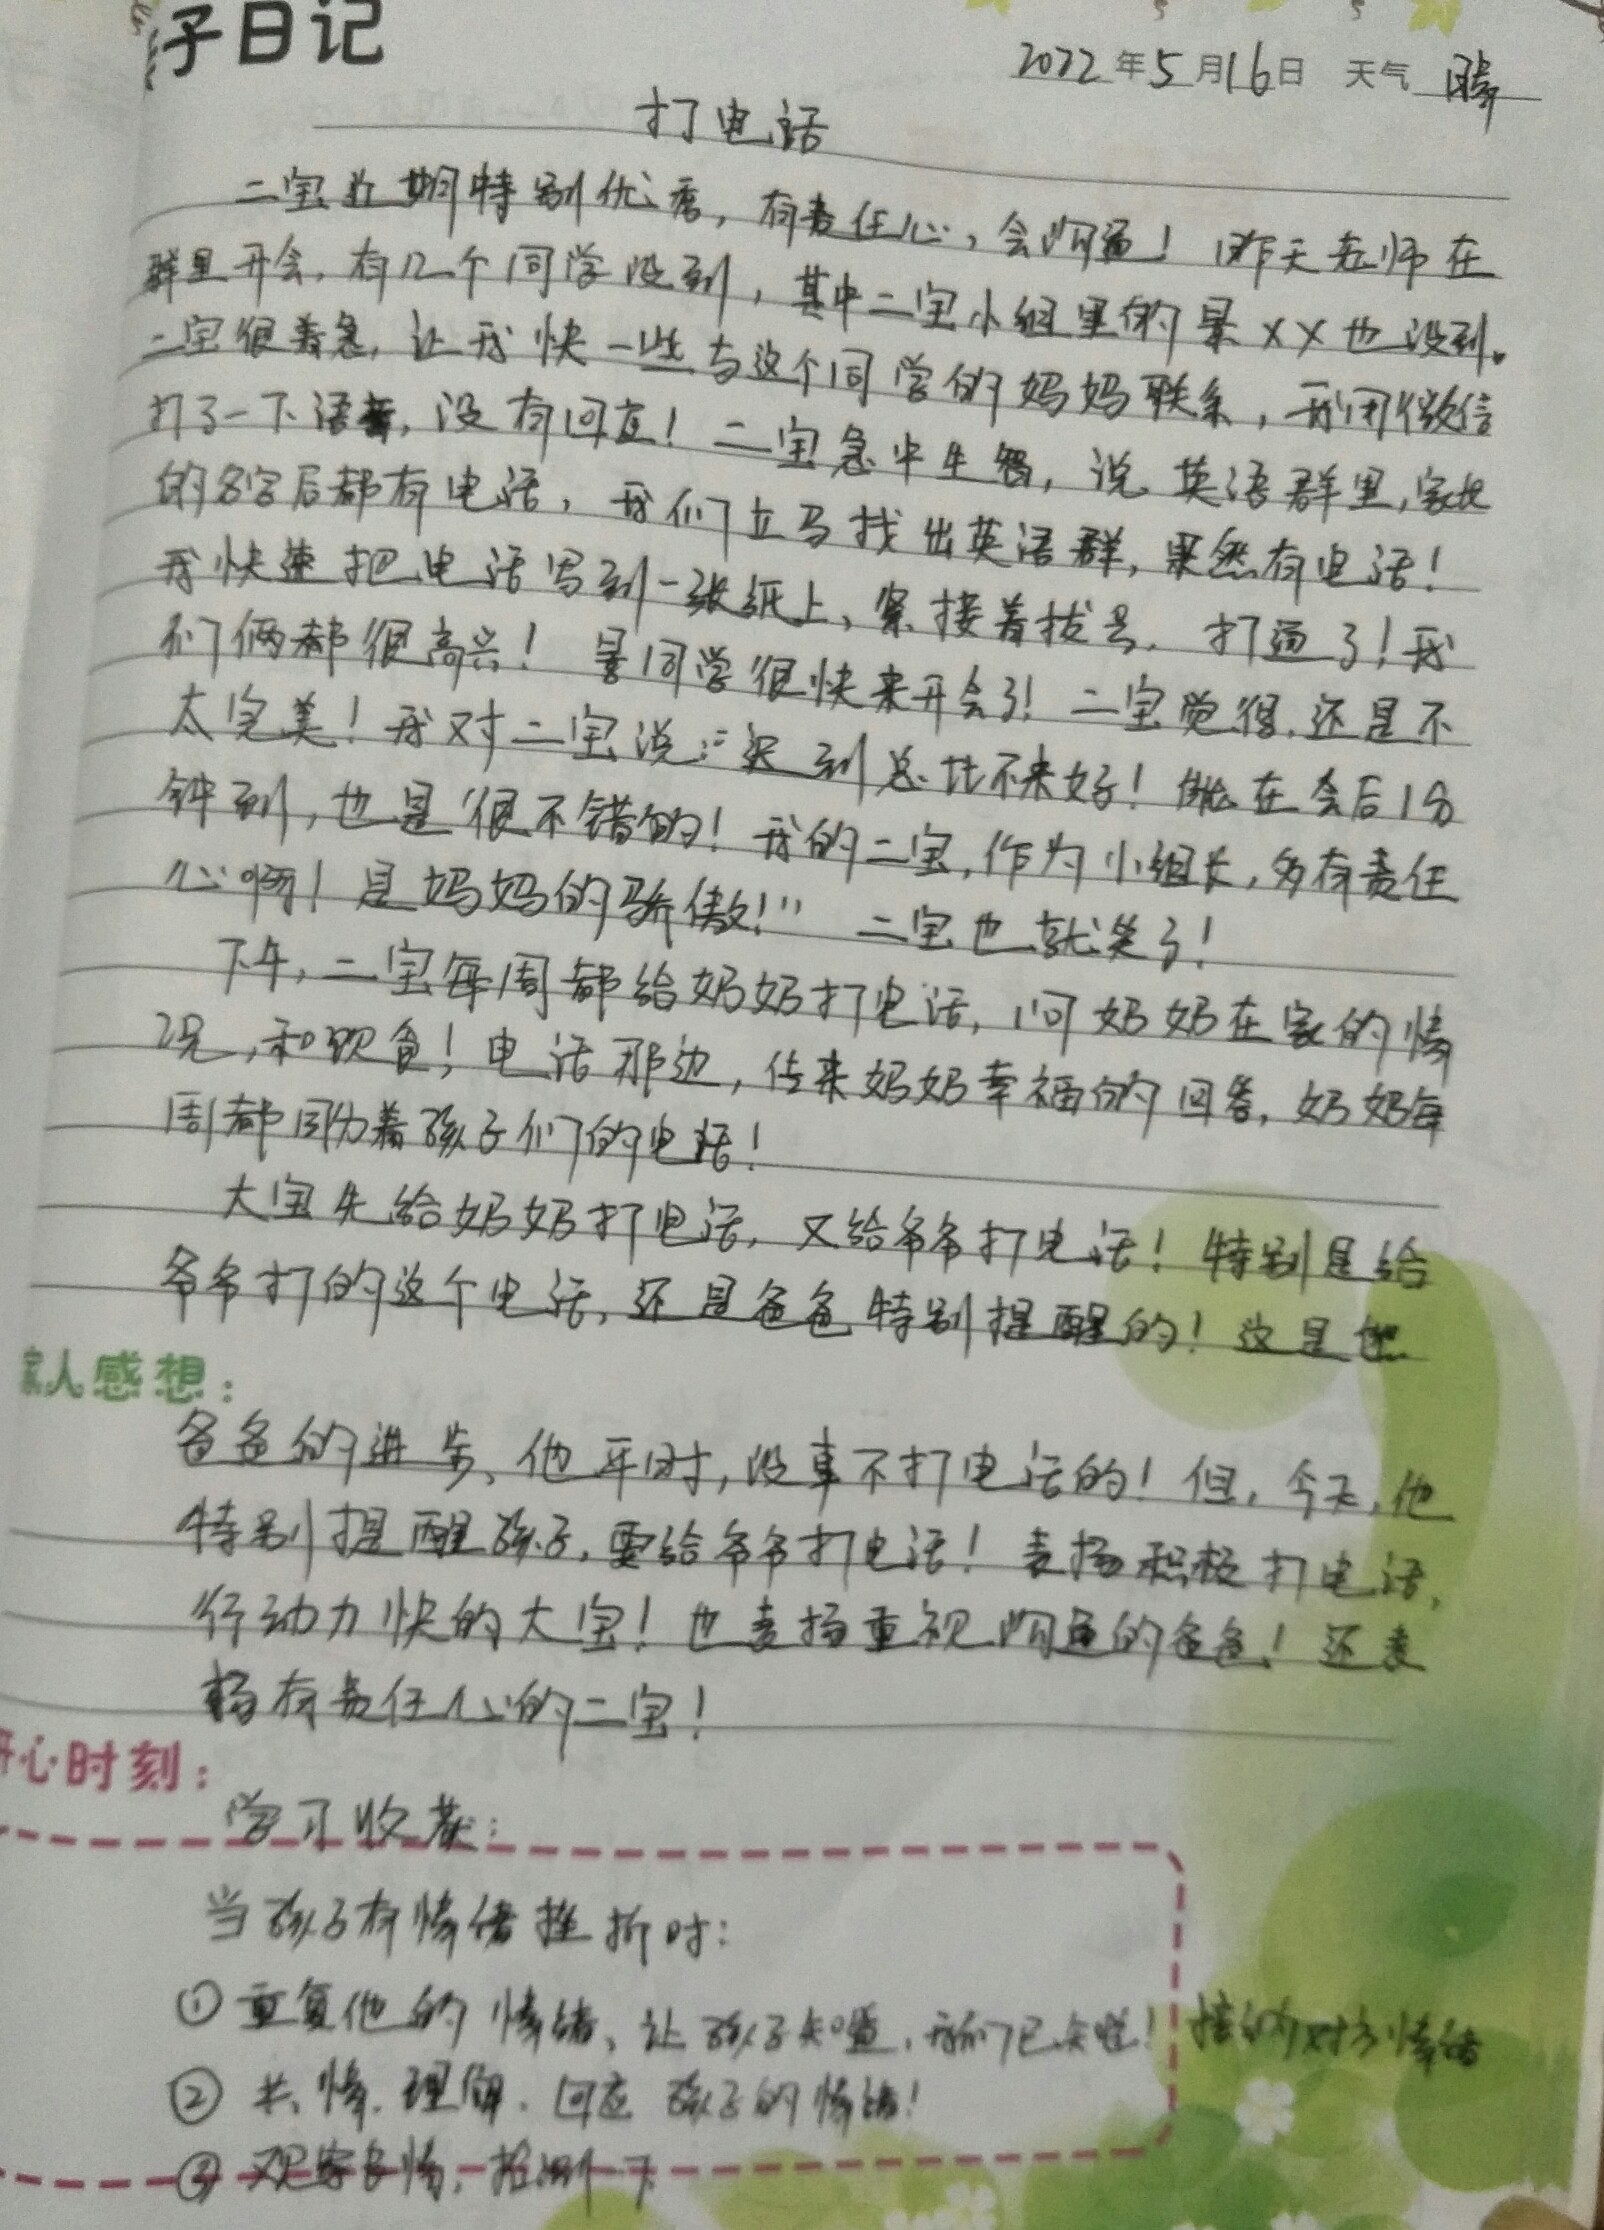 子日记
2022年5月16日 天气 晴
打电话
二宝近期特别优秀，有责任心，会沟通！昨天老师在
群里开会，有几个同学没到，其中二宝小组里的景××也没到。
二宝很着急，让我快一些与这个同学的妈妈联系，我用微信
打了一下语音，没有回应！二宝急中生智，说英语群里，家长
的名字后都有电话，我们立马找出英语群，果然有电话！
我快速把电话写到一张纸上，紧接着拔号，打通了！我
们俩都很高兴！景同学很快来开会了！二宝觉得，还是不
太完美！我对二宝说："迟到总比不来好！他在会后1分
钟到，也是很不错的！我的二宝，作为小组长，多有责任
心啊！是妈妈的骄傲！" 二宝也就笑了！
下午，二宝每周都给奶奶打电话，问奶奶在家的情
况，和饮食！电话那边，传来奶奶幸福的回答，奶奶每
周都盼着孩子们的电话！
大宝先给奶奶打电话，又给爷爷打电话！特别是给
爷爷打的这个电话，还是爸爸特别提醒的！这是他
家人感想：
爸爸的进步、他平时，没事不打电话的！但，今天，他
特别提醒孩子，要给爷爷打电话！表扬积极打电话，
行动力快的大宝！也表扬重视沟通的爸爸！还表
扬有责任心的二宝！
开心时刻：
学习收获：
当孩子有情绪挫折时：
①重复他的情绪、让孩子知道，我们已知道！接纳对方情绪
②共情、理解、回应孩子的情绪！
③观察表情，推测一下